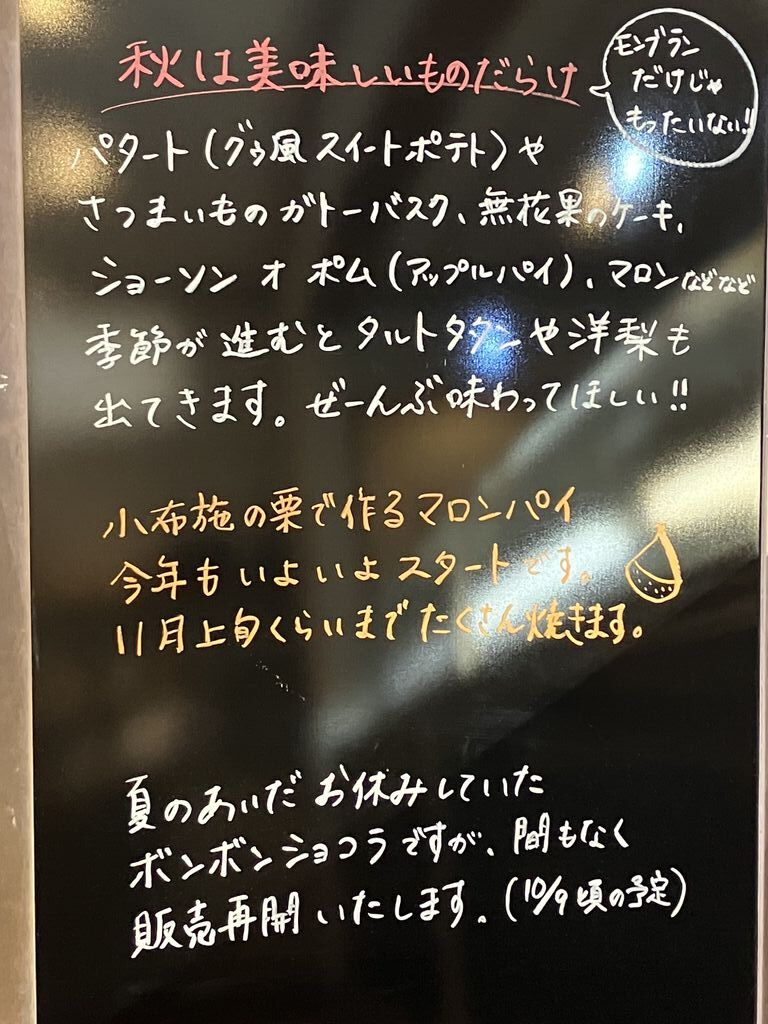 秋は美味しいものだらけ
モンブラン
だけじゃ
もったいない!!
パタート(グゥ風スイートポテト)や
さつまいものガトーバスク、無花果のケーキ、
ショーソン オ ポム(アップルパイ)、マロンなどなど
季節が進むとタルトタタンや洋梨も
出てきます。ぜーんぶ味わってほしい!!
小布施の栗で作るマロンパイ
今年もいよいよスタートです。
11月上旬くらいまでたくさん焼きます。
夏のあいだお休みしていた
ボンボンショコラですが、間もなく
販売再開いたします。(10/9頃の予定)